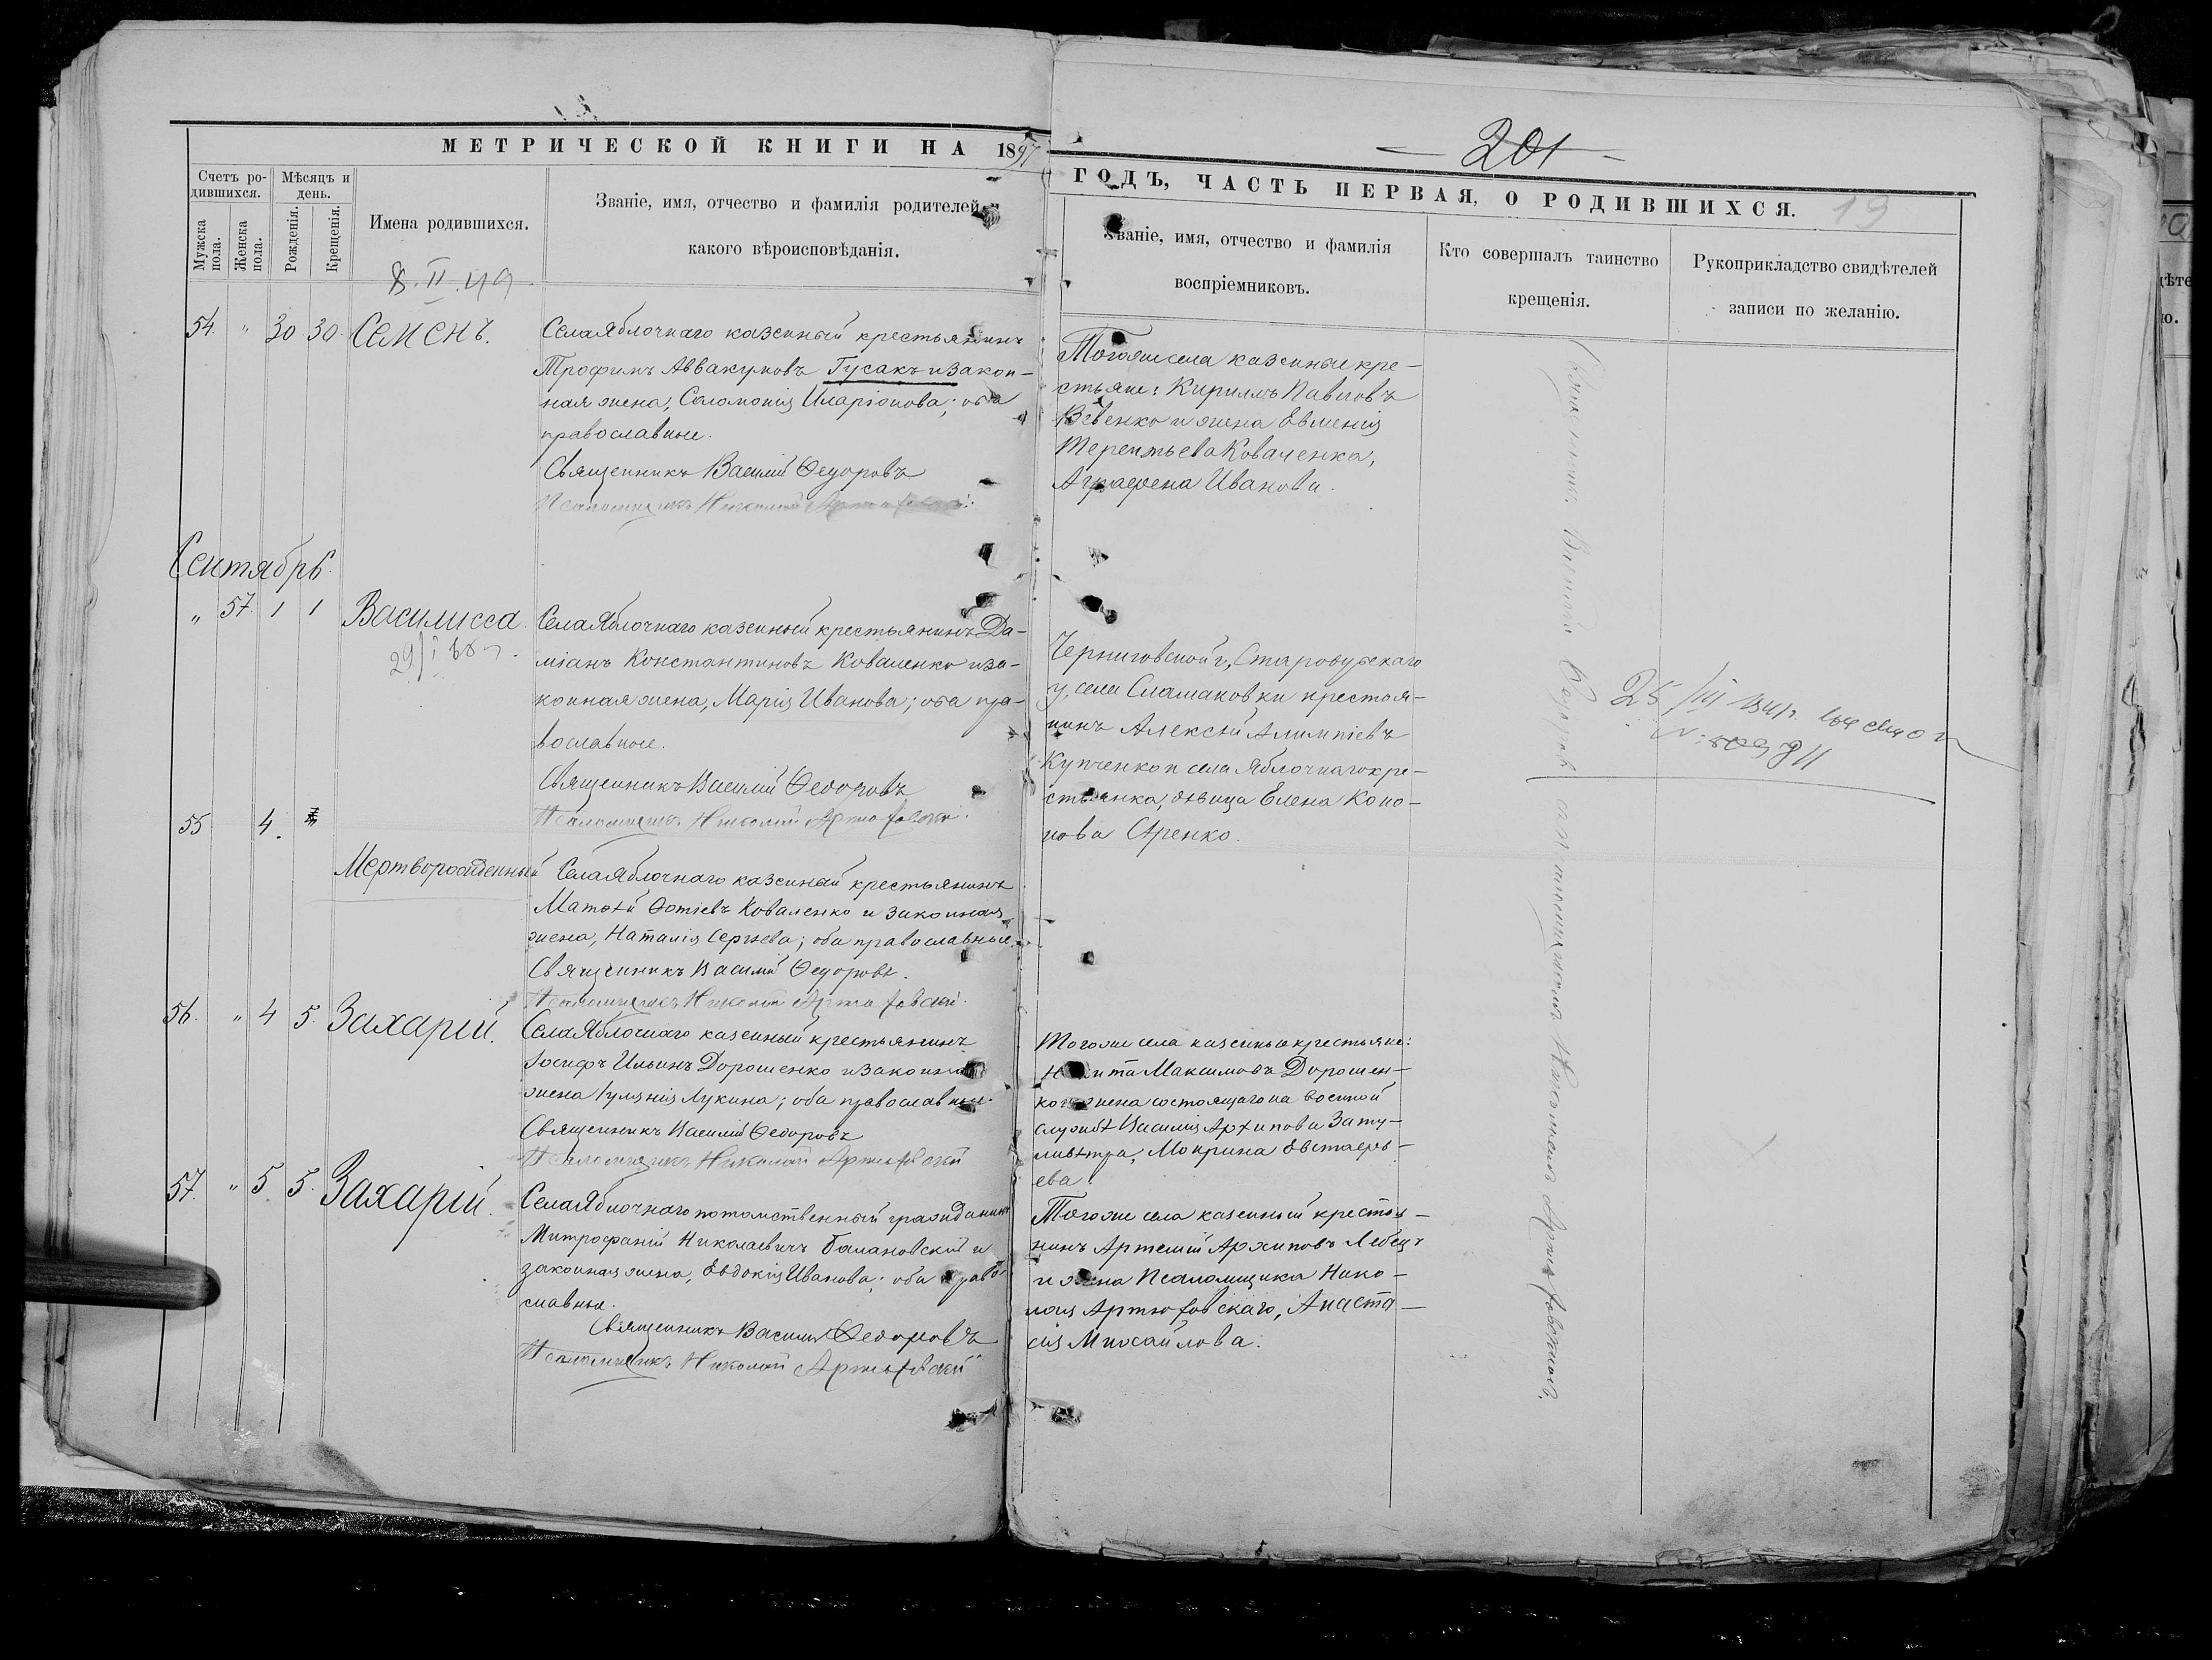 МЕТРИЧЕСКОЙ КНИГИ НА 1897
Счетъ ро-
дившихся.
Мѣсяцъ и
день.
Мужска
пола.
Женска
пола.
Рожденія.
Крещенія.
Имена родившихся.
Званіе, имя, отчество и фамилія родителей и
какого вѣроисповѣданія.
8.II.49
54. " 30 30. Семенъ.
Села Яблочнаго казенный крестьянинъ
Трофимъ Аввакумовъ Гусакъ и закон-
ная жена, Соломонія Иларіонова; оба
православные.
Священникъ Василій Ѳедоровъ
Псаломщикъ Николай
Сентябрь.
" 57. 1 1 Василисса.
Села Яблочнаго казенный крестьянинъ Да-
міанъ Константиновъ Коваленко и за-
конная жена, Марія Иванова; оба пра-
вославные.
Священникъ Василій Ѳедоровъ
Псаломщикъ Николай
55 4.
Мертворожденный
Села Яблочнаго казенный крестьянинъ
Матѳѣй Ѳотіевъ Коваленко и законная
жена, Наталія Сергѣева; оба православные.
Священникъ Василій Ѳедоровъ.
Псаломщикъ Николай
56. " 4 5. Захарій.
Села Яблочнаго казенный крестьянинъ
Іосифъ Ильинъ Дорошенко и законная
жена Іуліанія Лукина; оба православные.
Священникъ Василій Ѳедоровъ
Псаломщикъ Николай
57. " 5. 5. Захарій.
Села Яблочнаго потомственный гражданинъ
Митрофаній Николаевичъ Балановскій и
законная жена, Евдокія Иванова; оба право-
славные.
Священникъ Василій Ѳедоровъ
Псаломщикъ Николай
201
ГОДЪ, ЧАСТЬ ПЕРВАЯ, О РОДИВШИХСЯ.
19
Званіе, имя, отчество и фамилія
воспріемниковъ.
Кто совершалъ таинство
крещенія.
Рукоприкладство свидѣтелей
записи по желанію.
Того же села казенные кре-
стьяне: Кириллъ Павловъ
и жена Евменія
Терентьева Коваченка,
Аграфена Иванова.
Черниговской г., Стародубскаго
у, села крестья-
нинъ Алексѣй Алимпіевъ
Купченко и села Яблочнаго кре-
стьянка, дѣвица Елена Коно-
нова
Того же села казенные крестьяне:
Никита Максимовъ Дорошен-
ко и жена состоящаго на военной
службѣ Василія Архипова Зату-
ливѣтра, Мокрина Евстафь-
ева.
Того же села казенный крестья-
нинъ Артемій Архиповъ Лебедь
и жена Псаломщика Нико-
лая Артюховскаго, Анаста-
сія Михайлова.
Священникъ Василій Ѳедоровъ съ псаломщикомъ Николаемъ Артюховскимъ.
25/III